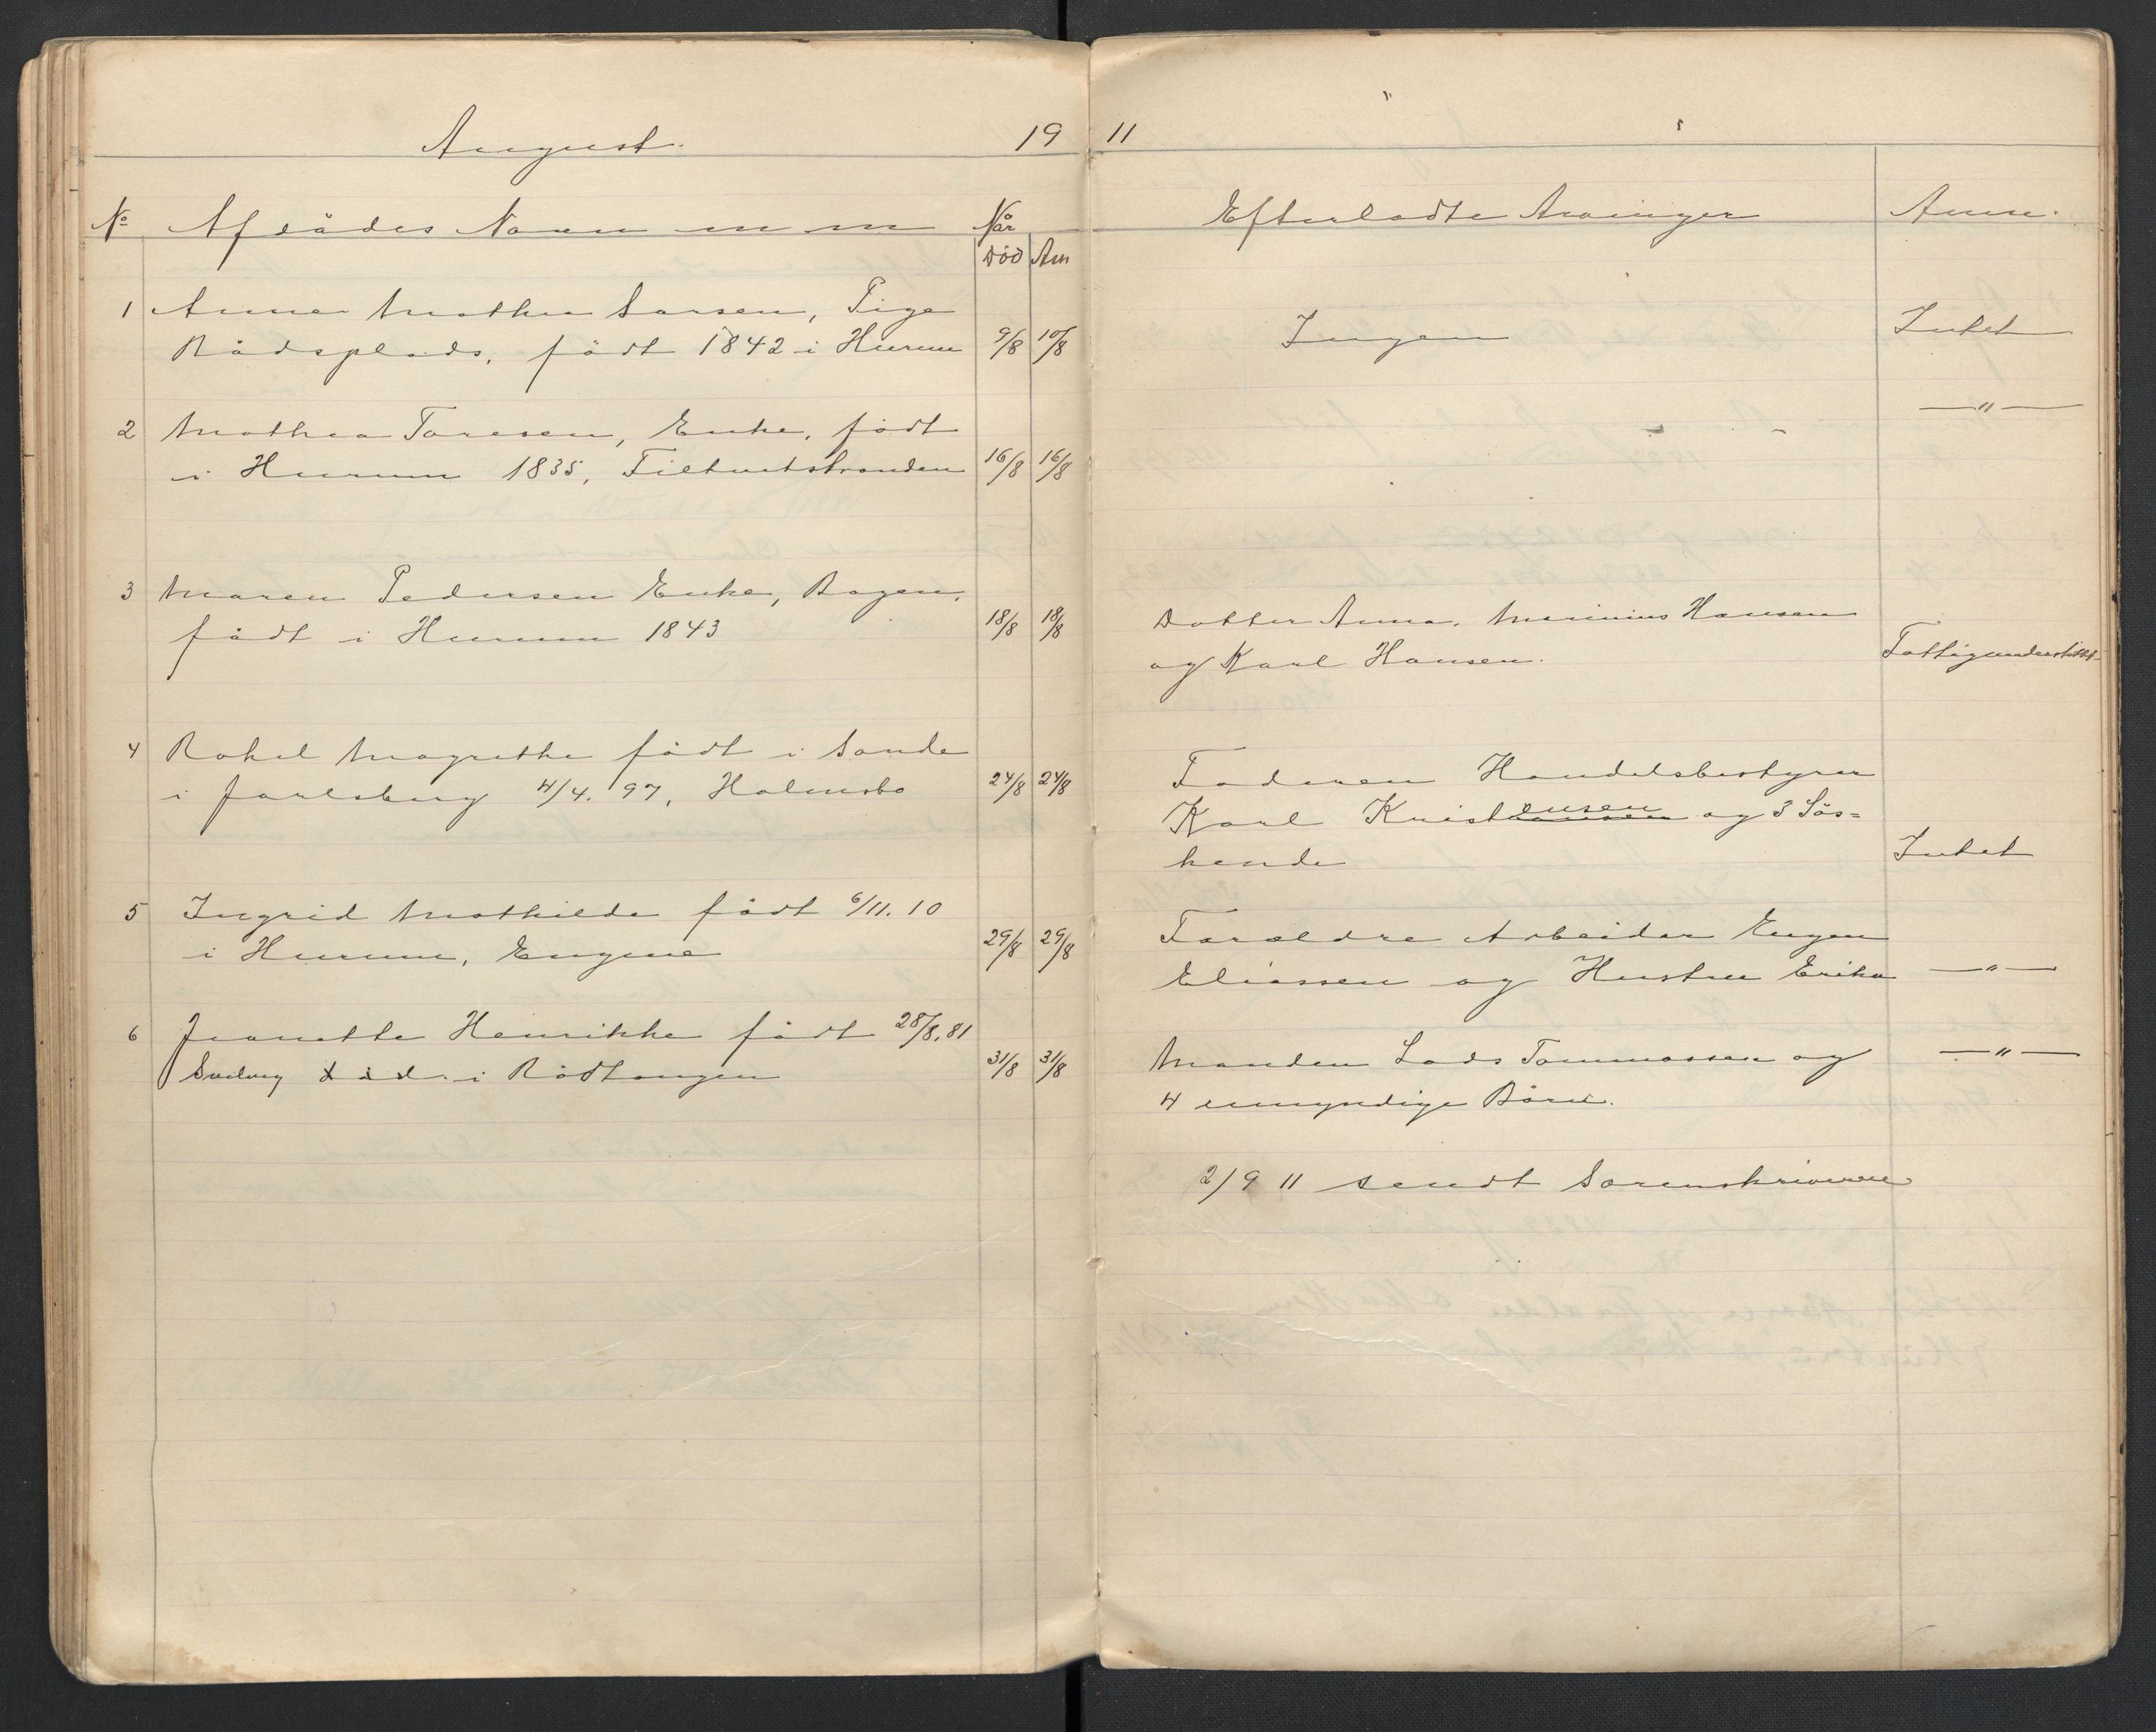 August. 19 11
No Afdödes Navn m m Når
Död Am
Efterladte Arvinger Anm.
1 Anne Mathea Larsen, Pige
Rödsplads, födt 1842 i Hurum 9/8 10/8
Ingen Intet
2 Mathea Toresen, Enke, födt
i Hurum 1835, Filtvetstranden 16/8 16/8
—"—
3 Maren Pedersen Enke, Bogen,
födt i Hurum 1843 18/8 18/8
Datter Anna, Marinius Hansen
og Karl Hansen. Fattigunderstöt.
4 Rakel Magrethe födt i Sande
i Jarlsberg 4/4. 97, Holmsbo 24/8 24/8
Faderen Handelsbestyrer
Karl Kristensen og 3 Sös=
kende Intet
5 Ingrid Mathilde födt 6/11. 10
i Hurum, Engene 29/8 29/8
Forældre Arbeider Eugen
Eliassen og Hustru Erika —"—
6 Jeanette Henrikke födt 28/8. 81
i Rödtangen 31/8 31/8
Manden Lods Tommassen og —"—
4 umyndige Börn.
2/9 11 sendt Sorenskriveren